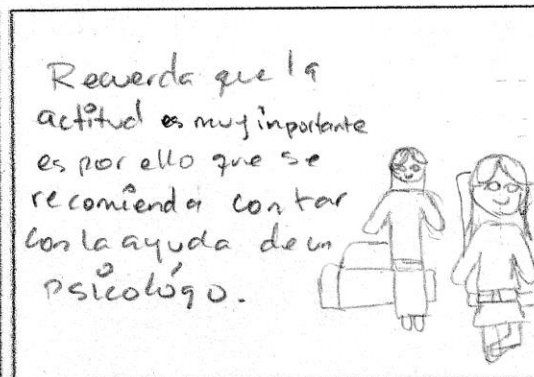 Recuerda que la
actitud es muy inportante
es por ello que se
recomienda contar
con la ayuda de un
psicológo.